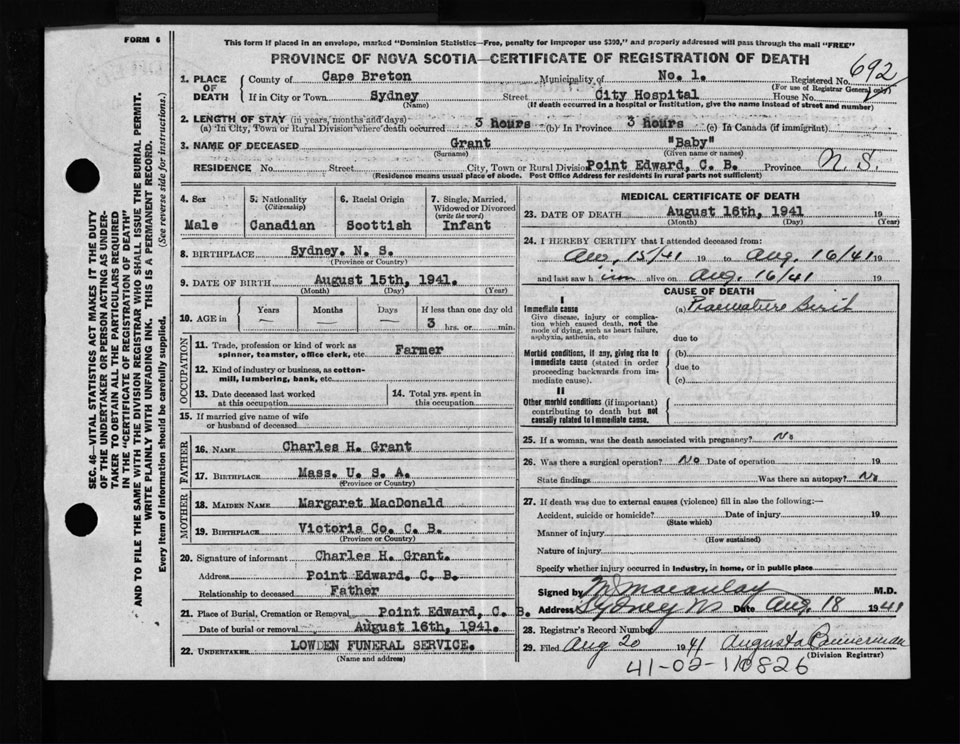 FORM 6
This form if placed in an envelope, marked "Dominion Statistics—Free, penalty for improper use $300," and properly addressed will pass through the mail "FREE"
PROVINCE OF NOVA SCOTIA—CERTIFICATE OF REGISTRATION OF DEATH
692
1. PLACE OF DEATH County of Cape Breton Municipality of No. 1. Registered No.
(For use of Registrar General only)
If in City or Town Sydney Street City Hospital House No.
(Name) (If death occurred in a hospital or Institution, give the name instead of street and number)
2. LENGTH OF STAY (in years, months and days)
(a) In City, Town or Rural Division where death occurred 3 hours (b) In Province 3 hours (c) In Canada (if immigrant)
3. NAME OF DECEASED Grant "Baby"
(Surname) (Given name or names)
RESIDENCE No. Street City, Town or Rural Division Point Edward, C. B. Province N. S.
(Residence means usual place of abode. Post Office Address for residents in rural parts not sufficient)
4. Sex Male
5. Nationality (Citizenship) Canadian
6. Racial Origin Scottish
7. Single, Married, Widowed or Divorced (write the word) Infant
8. BIRTHPLACE Sydney. N. S.
(Province or Country)
9. DATE OF BIRTH August 15th, 1941.
(Month) (Day) (Year)
10. AGE in Years Months Days If less than one day old
3 hrs. or min.
OCCUPATION
11. Trade, profession or kind of work as spinner, teamster, office clerk, etc Farmer
12. Kind of industry or business, as cotton-mill, lumbering, bank, etc
13. Date deceased last worked at this occupation
14. Total yrs. spent in this occupation
15. If married give name of wife or husband of deceased
FATHER
16. NAME Charles H. Grant
17. BIRTHPLACE Mass. U. S. A.
(Province or Country)
MOTHER
18. MAIDEN NAME Margaret MacDonald
19. BIRTHPLACE Victoria Co. C. B.
(Province or Country)
20. Signature of informant Charles H. Grant.
Address Point Edward. C. B.
Relationship to deceased Father
21. Place of Burial, Cremation or Removal Point Edward, C. B.
Date of burial or removal August 16th, 1941.
22. UNDERTAKER LOWDEN FUNERAL SERVICE.
(Name and address)
MEDICAL CERTIFICATE OF DEATH
23. DATE OF DEATH August 16th, 1941 19
(Month) (Day) (Year)
24. I HEREBY CERTIFY that I attended deceased from:
Aug. 15/41 19 to Aug. 16/41 19
and last saw h im alive on Aug. 16/41 19
CAUSE OF DEATH
I
Immediate cause (a) Praemature Birth
Give disease, injury or complication which caused death, not the mode of dying, such as heart failure, asphyxia, asthenia, etc
due to
Morbid conditions, if any, giving rise to immediate cause (stated in order proceeding backwards from immediate cause).
(b)
due to
(c)
II
Other morbid conditions (if important) contributing to death but not causally related to immediate cause.
25. If a woman, was the death associated with pregnancy? No
26. Was there a surgical operation? No Date of operation 19
State findings Was there an autopsy? No
27. If death was due to external causes (violence) fill in also the following:—
Accident, suicide or homicide? Date of injury 19
(State which)
Manner of injury
(How sustained)
Nature of injury
Specify whether injury occurred in industry, in home, or in public place
Signed by M Macaulay M.D.
Address Sydney NS Date Aug. 18 1941
28. Registrar's Record Number
29. Filed Aug 20 1941 Augusta Bannerman
(Division Registrar)
41-02-110826
SEC. 46—VITAL STATISTICS ACT MAKES IT THE DUTY
OF THE UNDERTAKER OR PERSON ACTING AS UNDER-
TAKER TO OBTAIN ALL THE PARTICULARS REQUIRED
IN THE "CERTIFICATE OF REGISTRATION OF DEATH"
AND TO FILE THE SAME WITH THE DIVISION REGISTRAR WHO SHALL ISSUE THE BURIAL PERMIT.
WRITE PLAINLY WITH UNFADING INK. THIS IS A PERMANENT RECORD.
Every item of information should be carefully supplied. (See reverse side for instructions.)